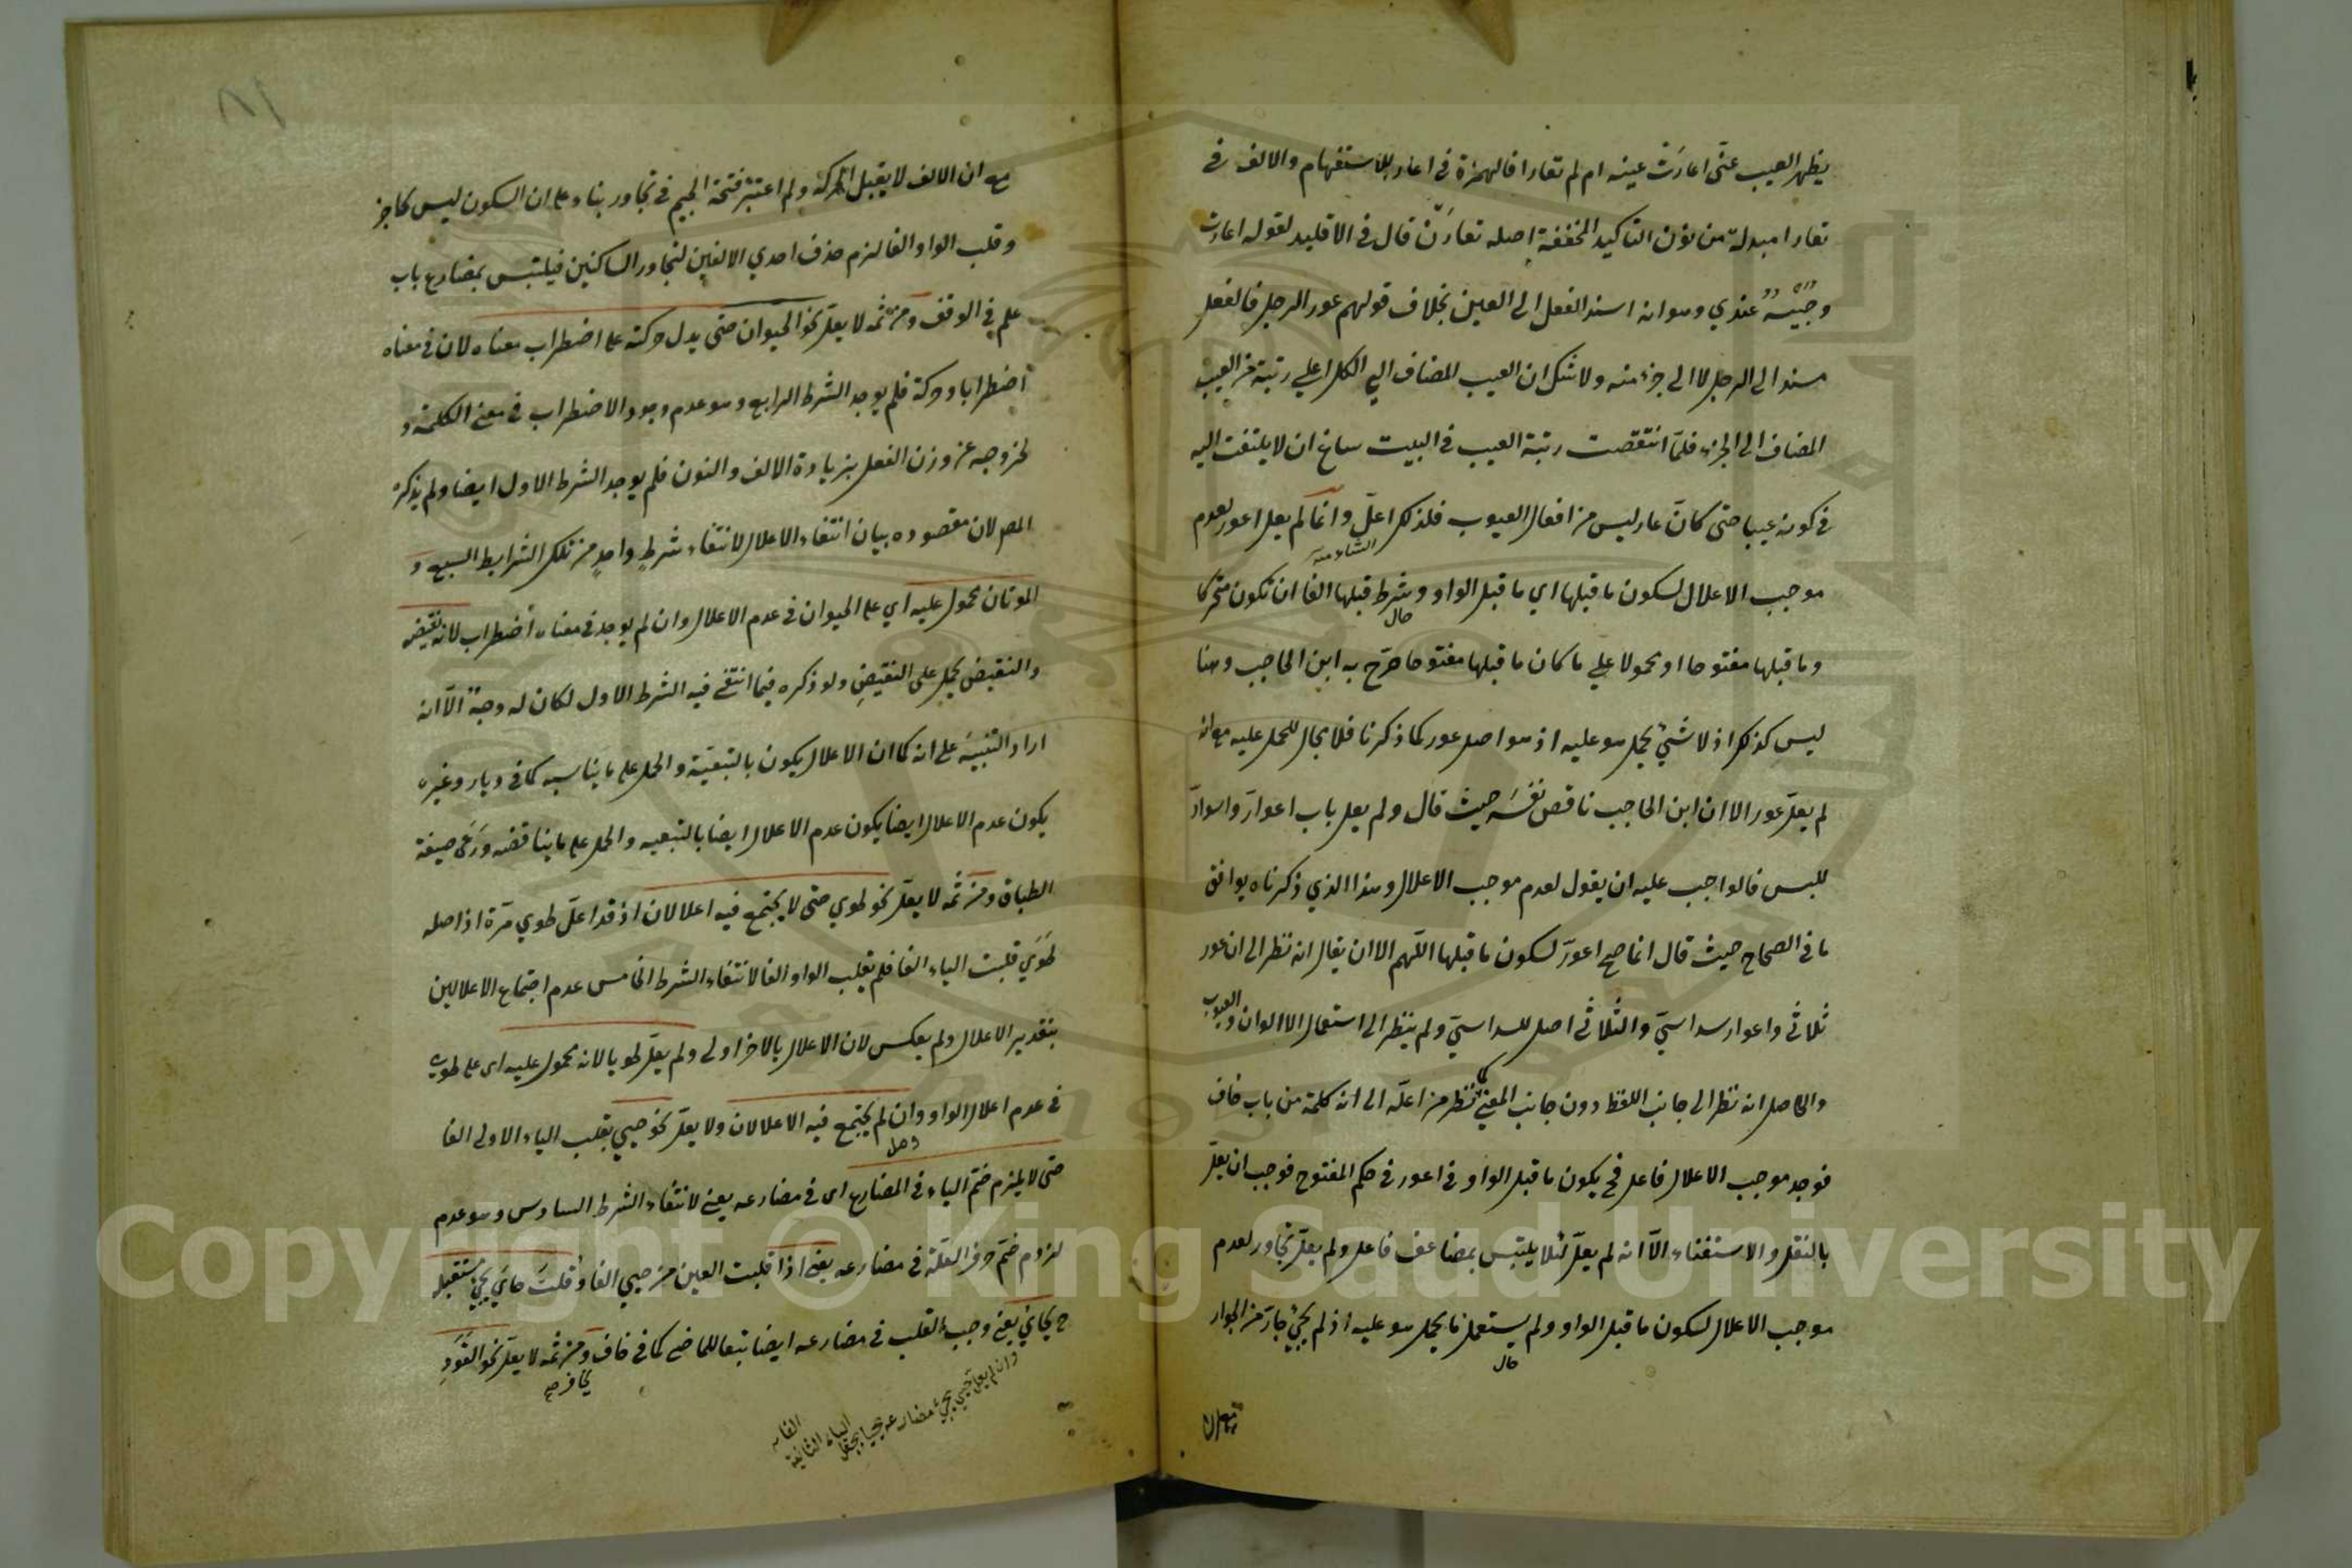 يظهر العيب عنّى اعارَتْ عينه ام لم تعارا فالهمزة في اعارت للاستفهام والالف في
تعارا مبدلة من نون التاكيد المخففة اصله تعارَنْ قال في الاقليد لقوله اعارت
وجيْهٌ عندي وهو انه اسند الفعل الى العين بخلاف قولهم عور الرجل فالفعل
مسند الى الرجل لا الى جزء منه ولا شك ان العيب المضاف الي الكل اعلي رتبة من العيب
المضاف الى الجزء فلمّا انتقصت رتبة العيب في البيت ساغ ان لا يلتفت اليه
في كونه عيبا حتى كانّ عار ليس من افعال العيوب فلذلك اعلّ وانما لم يعل اعور لعدم
موجب الاعلال لسكون ما قبلها اي ما قبل الواو وشرط قبلها الفا ان تكون متحركا
وما قبلها مفتوحا او محمولا علي ما كان ما قبلها مفتوحا صرّح به ابن الحاجب وهنا
ليس كذلك اذ لا شيْ يحمل هو عليه اذ هو اصل عور كما ذكرنا فلا مجال للحمل عليه مع انه
لم يعلّ عور الا ان ابن الحاجب ناقص نفسَه حيث قال ولم يعل باب اعوارّ واسوادّ
للبس فالواجب عليه ان يقول لعدم موجب الاعلال وهذا الذي ذكرناه يوافق
ما في الصحاح حيث قال انما صح اعورّ لسكون ما قبلها اللّهم الا ان يقال انه نظر الى ان عور
ثلاثي واعوار سداسيّ والثلاثي اصل للسداسيّ ولم ينظر الى استعمال الالوان والعيوب
والحاصل انه نظر الى جانب اللفظ دون جانب المعنى كما نظر من اعلّه الى انه كلمة من باب خاف
فوجد موجب الاعلال فاعل فح يكون ما قبل الواو في اعور في حكم المفتوح فوجب ان يعلّ
بالنقل والاستغناء الّا انه لم يعلّ لئلا يلتبس بمضاعف فاعل ولم يعلّ تجاور لعدم
موجب الاعلال لسكون ما قبل الواو ولم يستعمل ما يحمل هو عليه اذ لم يجئ جارَ من الجوار
مع ان
مع ان الالف لا يقبل الحركة ولم اعتبر فتحة الجيم في تجاور بناء على ان السكون ليس كحاجز
وقلب الواو الفا لزم حذف احدي الالفين لتجاور الساكنين فيلتبس بمضارع باب
علم في الوقف ومن ثمه لا يعلّ نحو الحيوان حتى يدل حركته على اضطراب معناه لان في معناه
اضطرابا وحركة فلم يوجد الشرط الرابع وهو عدم وجود الاضطراب في معنى الكلمة و
لخروجه عن وزن الفعل بزيادة الالف والنون فلم يوجد الشرط الاول ايضا ولم يذكره
المص لان مقصوده بيان انتفاء الاعلال لانتفاء شرطٍ واحدٍ من تلك الشرايط السبع و
الموتان محمول عليه اي على الحيوان في عدم الاعلال وان لم يوجد في معناه اضطراب لانه نقيضه
والنقيض يحمل على النقيضِ ولو ذكره فيما انتفى فيه الشرط الاول لكان له وجهٌ الّا انه
اراد التنبيهَ على انه كما ان الاعلال يكون بالتبعيّة والحمل على ما يناسبه كما في ديار وغيره
يكون عدم الاعلال ايضا يكون عدم الاعلال ايضا بالتبعيه والحمل على ما يناقضه ورَعَى صيغة
الطباق ومن ثَمه لا يعلّ نحو طوي حتى لا يجتمع فيه اعلالان اذ قد اعلّ طوي مرّة اذ اصله
طَوَيَ قلبت الياء الفا فلم يقلب الواو الفا لانتفاء الشرط الخامس عدم اجتماع الاعلالين
بتقدير الاعلال ولم يعكس لان الاعلال بالاخر اولى ولم يعلّ طويا لانه محمول عليه اى على طوي
في عدم اعلال الواو وان لم يجتمع فيه الاعلالان ولا يعلّ نحو حيي بقلب الياء الاولى الفا
حتى لا يلزم ضمّ الياء في المضارع اى في مضارعه يعنى لانتفاء الشرط السادس وهو عدم
لزوم ضمّ حرف العلّة في مضارعه يعنى اذا قلبت العين من حيي الفا وقلتَ حايَ يجئ مستقبله
ح يحايُ يعنى وجب القلب في مضارعه ايضا تبعا للماضى كما في خاف ومن ثمه لا يعلّ نحو القَوَدِ
وان لم يعل حيي يجئ مضارعه يحيا بجعل
الياء الثانية
الفا